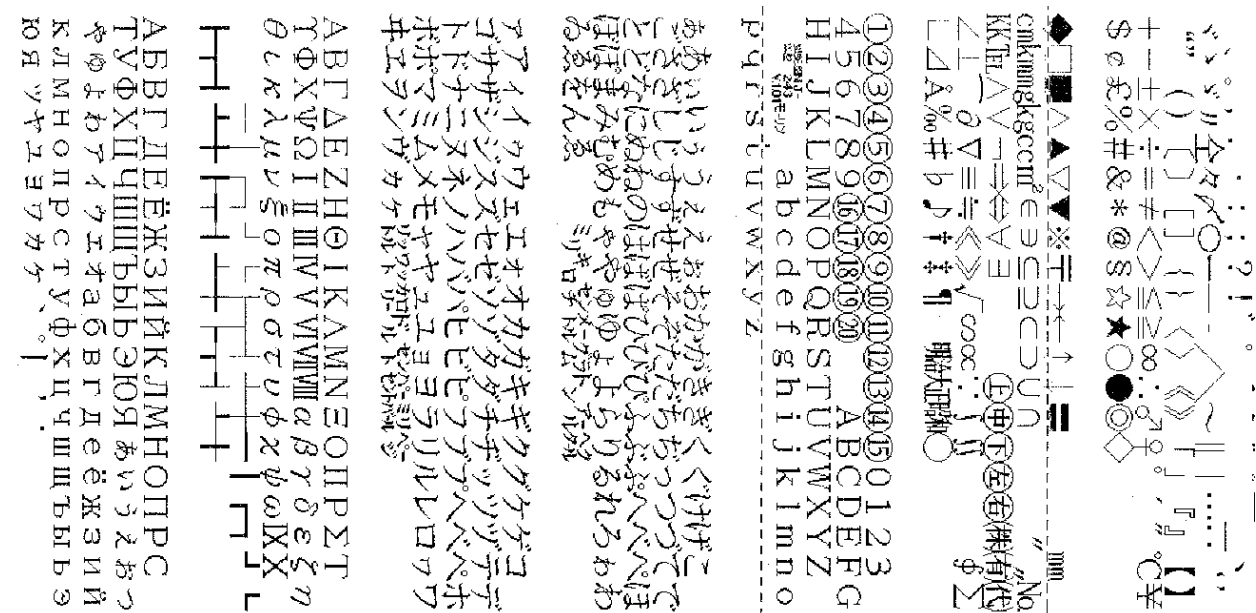 +−±×÷=≠<>≦≧∞∴♂♀°℃¥
$¢£%#&*@§☆★○●◎◇
◆□■△▲▽▼※〒→←↑↓〓
cmkmmgkgccm²∈∋⊆⊇⊂⊃∪∩〝No
KKTel∧∨¬⇒⇔∀∃㊤㊥㊦㊧㊨㈱㈲㈹
∠⊥⌒∂∇≡≒≪≫√∽∝∵∫∬∮Σ
∟⊿Å‰♯♭♪†‡¶明治大正昭和◯
①②③④⑤⑥⑦⑧⑨⑩⑪⑫⑬⑭⑮0123
456789⑯⑰⑱⑲⑳ABCDEFG
HIJKLMNOPQRSTUVWXYZ
abcdefghijklmno
pqrstuvwxyz
ぁあぃいぅうぇえぉおかがきぎくぐけげこ
ごさざしじすずせぜそぞただちぢっつづて
でとどなにぬねのはばぱひびぴふぶぷへべぺほ
ぼぽまみむめもゃやゅゆょよらりるれろゎわ
ゐゑをん
ァアィイゥウェエォオカガキギクグケゲコ
ゴサザシジスズセゼソゾタダチヂッツヅテデ
トドナニヌネノハバパヒビピフブプヘベペホ
ボポマミムメモャヤュユョヨラリルレロヮワ
ヰヱヲンヴヵヶ
ΑΒΓΔΕΖΗΘΙΚΛΜΝΞΟΠΡΣΤ
ΥΦΧΨΩⅠⅡⅢⅣⅤⅥⅦⅧαβγδεζη
θικλμνξοπρστυφχψωⅨⅩ
АБВГДЕЁЖЗИЙКЛМНОПРС
ТУФХЦЧШЩЪЫЬЭЮЯぁぃぅぇぉっ
ゃゅょゎァィゥェォабвгдеёжзий
клмнопрстуфхцчшщъыьэ
юяッャュョヮヵヶ、。ー